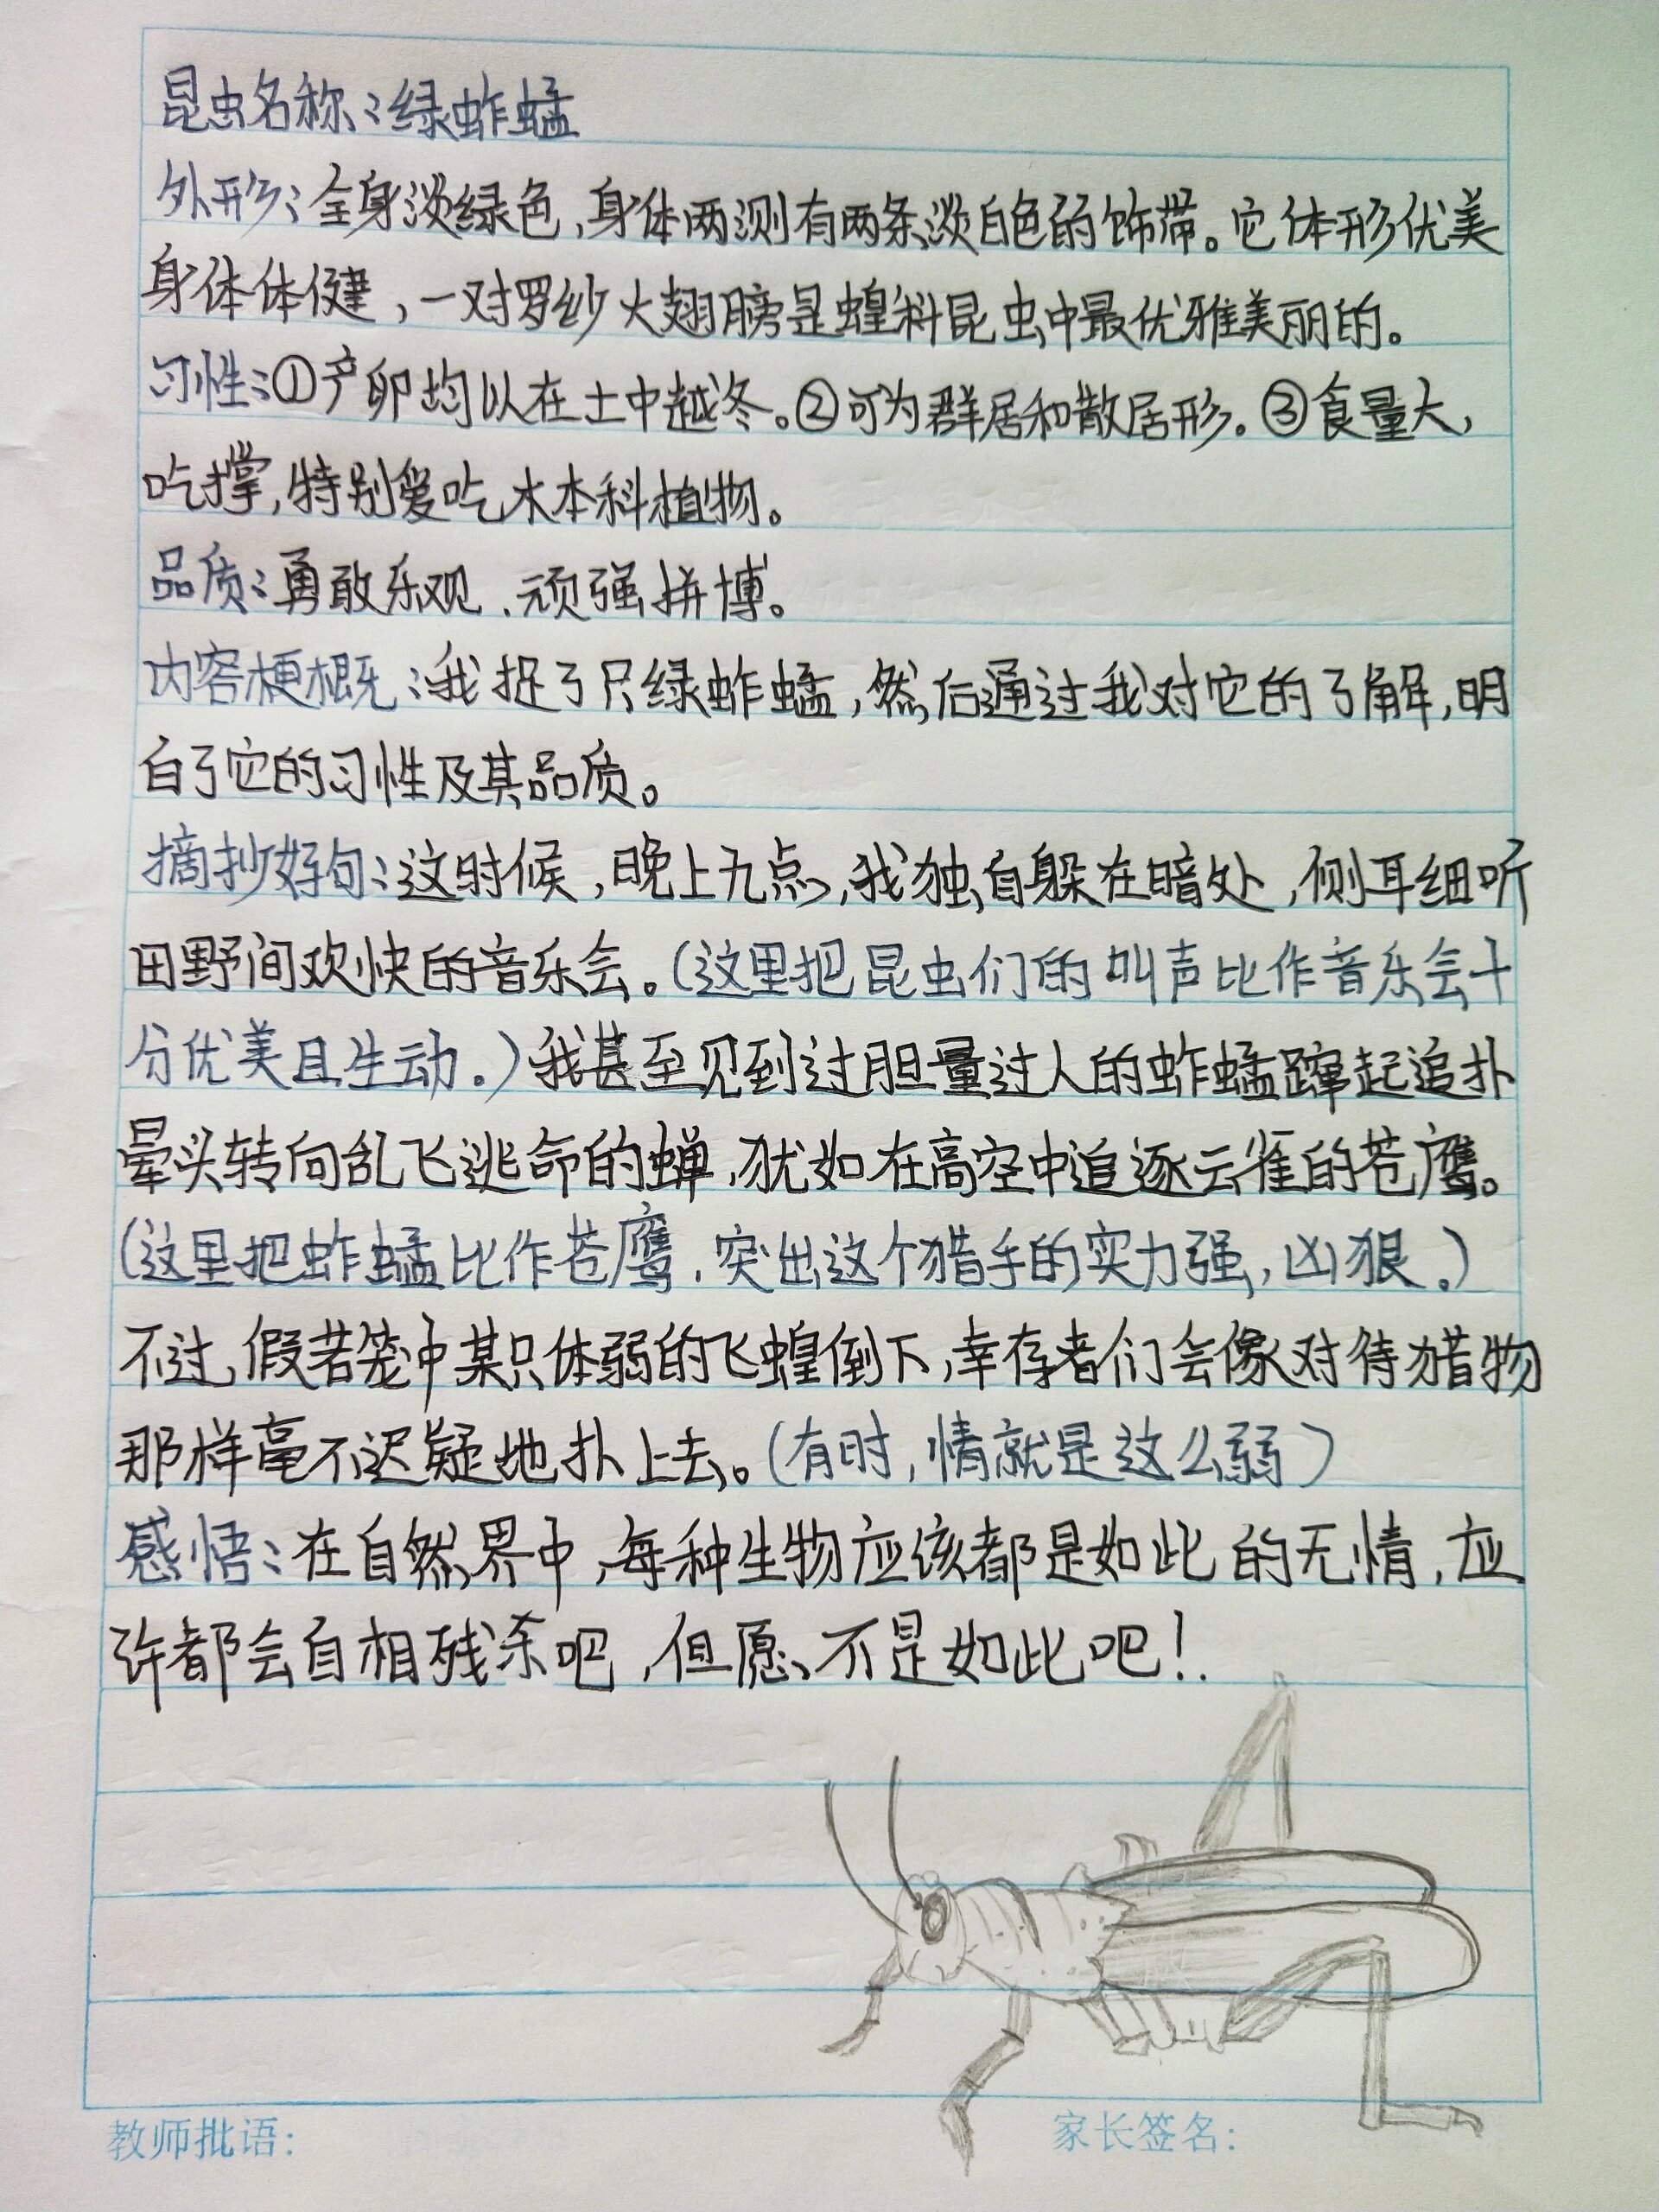 昆虫名称:绿蚱蜢
外形:全身淡绿色,身体两测有两条淡白色的饰带。它体形优美
身体体健,一对罗纱大翅膀是蝗科昆虫中最优雅美丽的。
习性:①产卵均以在土中越冬。②可为群居和散居形。③食量大,
吃撑,特别爱吃木本科植物。
品质:勇敢乐观、顽强拼博。
内容梗概:我捉了只绿蚱蜢,然后通过我对它的了解,明
白了它的习性及其品质。
摘抄好句:这时候,晚上九点,我独自躲在暗处,侧耳细听
田野间欢快的音乐会。(这里把昆虫们的叫声比作音乐会十
分优美且生动。)我甚至见到过胆量过人的蚱蜢蹿起追扑
晕头转向乱飞逃命的蝉,犹如在高空中追逐云雀的苍鹰。
(这里把蚱蜢比作苍鹰,突出这个猎手的实力强,凶狠。)
不过,假若笼中某只体弱的飞蝗倒下,幸存者们会像对待猎物
那样毫不迟疑地扑上去。(有时,情就是这么弱)
感悟:在自然界中,每种生物应该都是如此的无情,应
许都会自相残杀吧,但愿不是如此吧!.
教师批语:
家长签名: